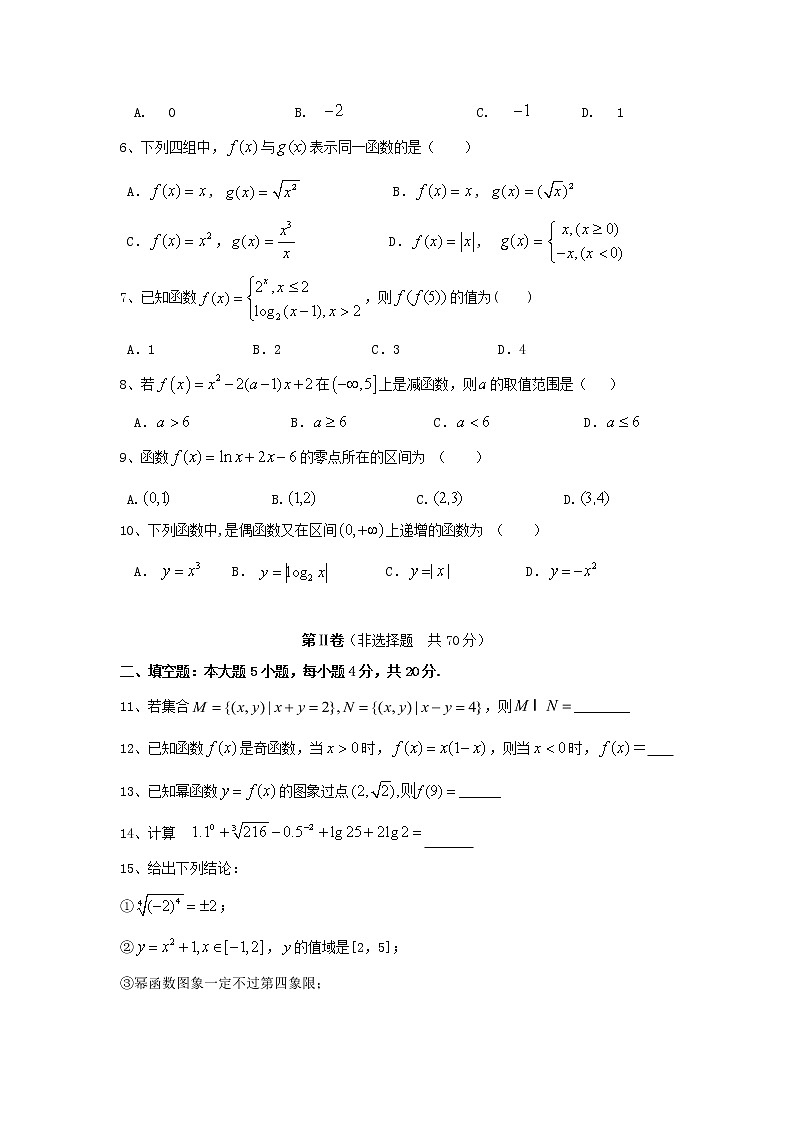 A. 0 B. −2 C. −1 D. 1
6、下列四组中，f(x)与g(x)表示同一函数的是（ ）
A. f(x) = x, g(x) = √(x²) B. f(x) = x, g(x) = (√x)²
C. f(x) = x², g(x) = x³/x D. f(x) = |x|, g(x) = { x, (x ≥ 0) −x, (x < 0)
7、已知函数 f(x) = { 2ˣ, x ≤ 2 log₂(x − 1), x > 2 ,则 f(f(5)) 的值为( )
A.1 B.2 C.3 D.4
8、若 f(x) = x² − 2(a − 1)x + 2 在 (−∞,5] 上是减函数，则a的取值范围是（ ）
A. a > 6 B. a ≥ 6 C. a < 6 D. a ≤ 6
9、函数 f(x) = ln x + 2x − 6 的零点所在的区间为 （ ）
A. (0,1) B. (1,2) C. (2,3) D. (3,4)
10、下列函数中,是偶函数又在区间(0,+∞)上递增的函数为 （ ）
A. y = x³ B. y = |log₂ x| C. y =| x | D. y = −x²
第Ⅱ卷（非选择题 共 70 分）
二、填空题：本大题 5 小题，每小题 4 分，共 20 分．
11、若集合 M = {(x, y) | x + y = 2}, N = {(x, y) | x − y = 4}，则 M I N = ________
12、已知函数 f(x) 是奇函数，当 x > 0 时， f(x) = x(1− x) ，则当 x < 0 时， f(x) = ____
13、已知幂函数 y = f(x) 的图象过点 (2, √2),则f(9) = ______
14、计算 1.1⁰ + ³√216 − 0.5⁻² + lg 25 + 2lg 2 = _______
15、给出下列结论：
① ⁴√(−2)⁴ = ±2；
② y = x² + 1, x ∈ [−1,2]， y 的值域是[2，5]；
③幂函数图象一定不过第四象限；